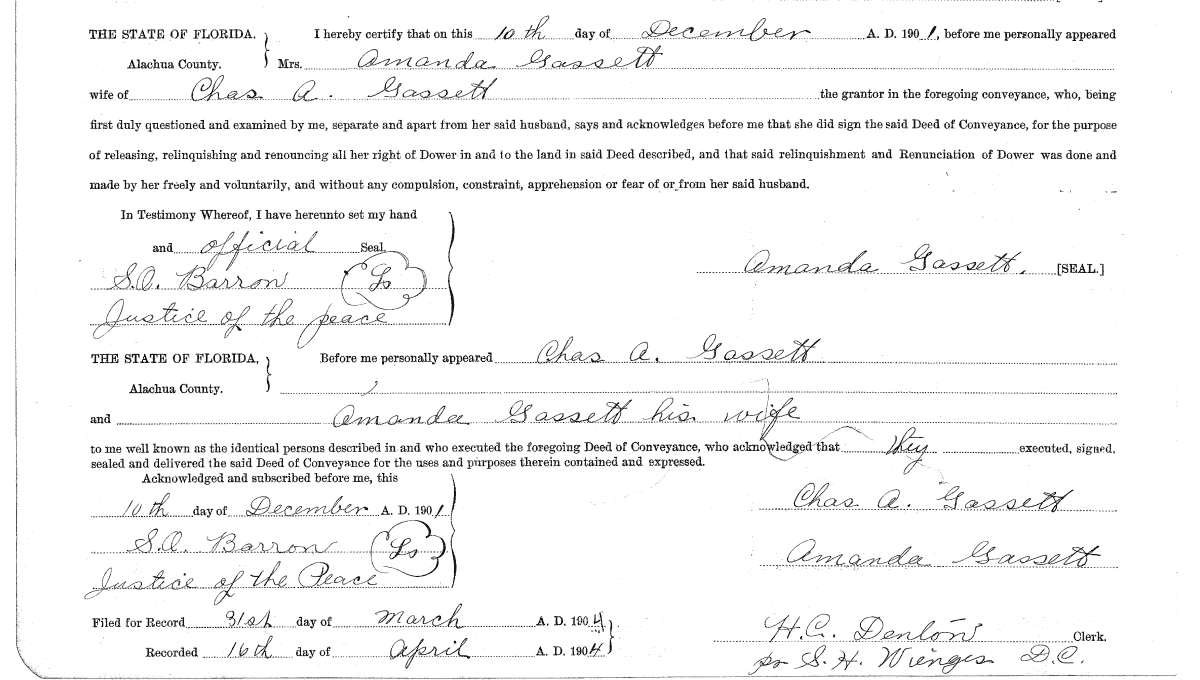 THE STATE OF FLORIDA. I hereby certify that on this 10th day of December A. D. 1901, before me personally appeared
Alachua County. Mrs. Amanda Gassett
wife of Chas A. Gassett the grantor in the foregoing conveyance, who, being
first duly questioned and examined by me, separate and apart from her said husband, says and acknowledges before me that she did sign the said Deed of Conveyance, for the purpose
of releasing, relinquishing and renouncing all her right of Dower in and to the land in said Deed described, and that said relinquishment and Renunciation of Dower was done and
made by her freely and voluntarily, and without any compulsion, constraint, apprehension or fear of or from her said husband.
In Testimony Whereof, I have hereunto set my hand
and official Seal.
S.O. Barron Ls
Amanda Gassett. [SEAL.]
Justice of the peace
THE STATE OF FLORIDA, Before me personally appeared Chas A. Gassett
Alachua County.
and Amanda Gassett his wife
to me well known as the identical persons described in and who executed the foregoing Deed of Conveyance, who acknowledged that they executed, signed,
sealed and delivered the said Deed of Conveyance for the uses and purposes therein contained and expressed.
Acknowledged and subscribed before me, this
10th day of December A. D. 1901
Chas A. Gassett
S.O. Barron Ls
Amanda Gassett
Justice of the Peace
Filed for Record 31st day of March A. D. 1904
H.C. Denton Clerk.
Recorded 16th day of April A. D. 1904
pr S. H. Wienges D.C.